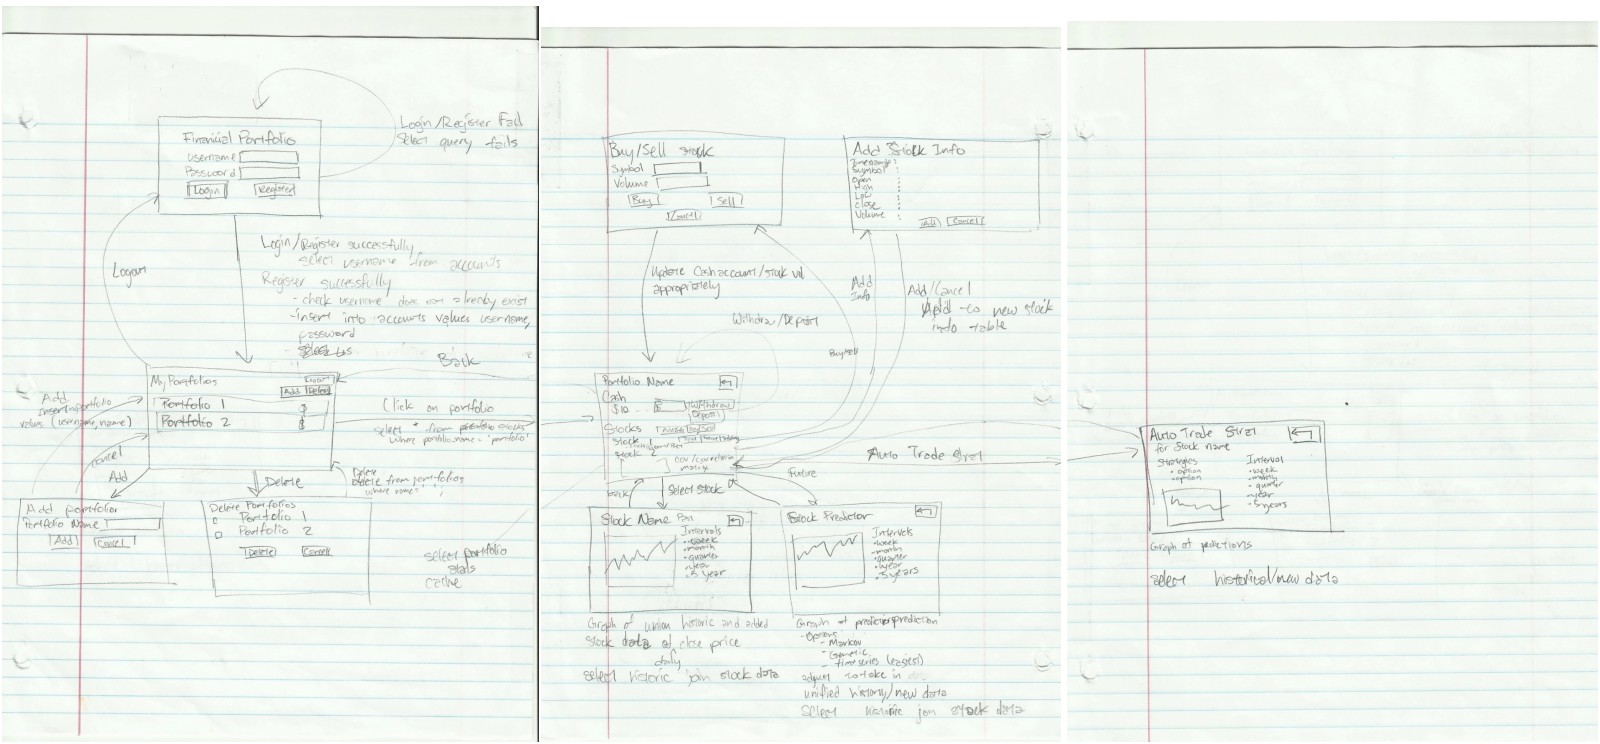 Login/Register Fail
Select query fails
Financial Portfolio
username
Password
Login
Register
Login/Register successfully
select username from accounts
Register successfully
- check username does not already exist
- insert into accounts values username,
password
Logout
Back
My Portfolios
Logout
Add
Delete
Portfolio 1
Portfolio 2
Add
Insert into portfolio
values (username, name)
Cancel
Add
Click on portfolio
select * from
where portfolioname = 'portfolio'
Delete
Delete
Delete from portfolios
where name = ' ';
Add portfolio
Portfolio Name
Add
Cancel
Delete Portfolios
Portfolio 1
Portfolio 2
Delete
Cancel
select portfolio
stats
cache
Buy/Sell stock
Symbol
Volume
Buy
Sell
Cancel
Add Stock Info
Timestamp :
Symbol :
Open :
High :
Low :
Close :
Volume :
Add
Cancel
Update Cash account/stock vol
appropriately
Add
Info
Add/Cancel
Add to new stock
info table
Withdraw/Deposit
Buy/Sell
Portfolio Name
Cash
$10
Withdraw
Deposit
Stocks
Buy/Sell
Stock 1
Stock 2
cov/correlation
matrix
Auto Trade Strat
Back
Select stock
Future
Stock Name
Intervals
- week
- month
- quarter
- year
- 5 year
Stock Predictor
Intervals
- week
- month
- quarter
- year
- 5 years
Graph of union historic and added
stock data of close price
daily
select historic join stock data
Graph of prediction
- Options
- Markov
- Genetic
- time series (easiest)
adjust to take in
unified history/new data
Select historic join stock data
Auto Trade Strat
for stock name
Strategies
• option
• option
Interval
• week
• month
• quarter
- year
- 5 years
Graph of predictions
select historical/new data